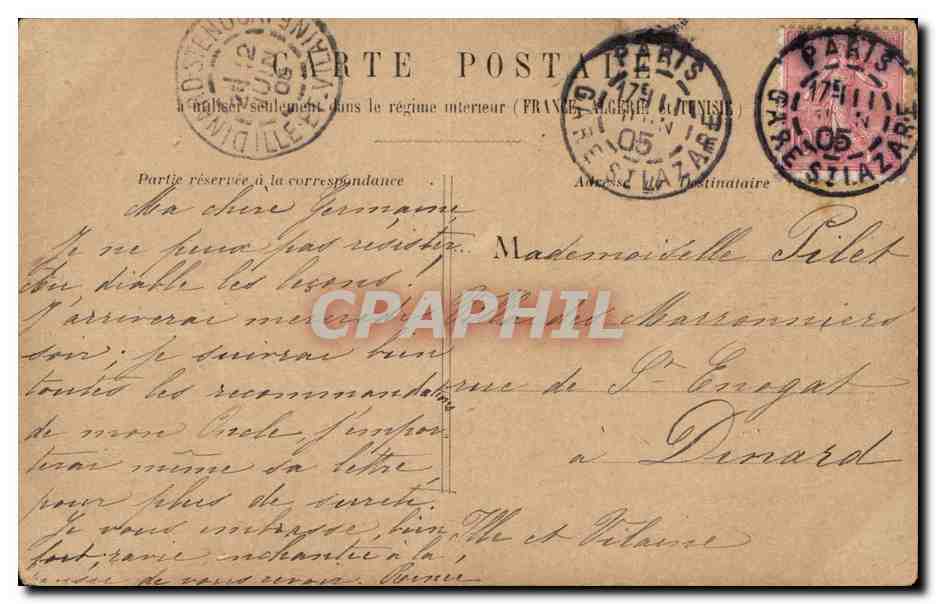 CARTE POSTALE
à utiliser seulement dans le régime intérieur (FRANCE, ALGERIE et TUNISIE)
DINARD-ST ENOGAT ILLE-ET-VILAINE
12
JUIN
05
PARIS
17
JUIN
05
GARE ST LAZARE
PARIS
17
JUIN
05
GARE ST LAZARE
Partie réservée à la correspondance
Adresse du destinataire
Ma chère Germaine
Je ne peux pas résister.
Au diable les leçons!
J'arriverai mercredi
soir; je suivrai bien
toutes les recommandations
de mon Oncle, j'empor
terai même sa lettre
pour plus de sureté.
Je vous embrasse, bien
fort, ravie enchantée à la
pensée de vous revoir. Renée
Mademoiselle Pilet
Villa des Marronniers
rue de St Enogat
à Dinard
Ille et Vilaine
CPAPHIL